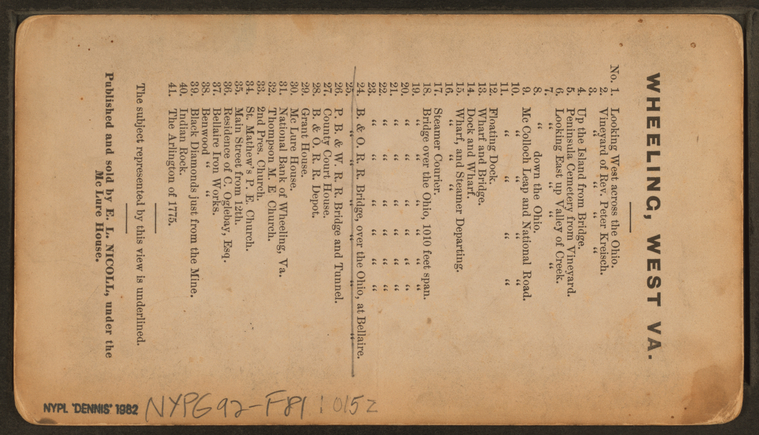 WHEELING, WEST VA.
No. 1. Looking West across the Ohio.
2. Vineyard of Rev. Peter Kreisch.
3. " " " "
4. Up the Island from Bridge.
5. Peninsula Cemetery from Vineyard.
6. Looking East up Valley of Creek.
7. " " " " "
8. " down the Ohio.
9. Mc Colloch Leap and National Road.
10. " " " "
11. " " " "
12. Floating Dock.
13. Wharf and Bridge.
14. Dock and Wharf.
15. Wharf, and Steamer Departing.
16. " "
17. Steamer Courier.
18. Bridge over the Ohio, 1010 feet span.
19. " " " " " "
20. " " " " " "
21. " " " " " "
22. " " " " " "
23. " " " " " "
24. B. & O. R. R. Bridge, over the Ohio, at Bellaire.
25. " " " " " "
26. P. B. & W. R. R. Bridge and Tunnel.
27. County Court House.
28. B. & O. R. R. Depot.
29. Grant House.
30. Mc Lure House.
31. National Bank of Wheeling, Va.
32. Thompson M. E Church.
33. 2nd Pres. Church.
34. St. Mathew's P. E. Church.
35. Main Street from 12th.
36. Residence of C. Oglebay, Esq.
37. Bellaire Iron Works.
38. Benwood " "
39. Black Diamonds just from the Mine.
40. Indian Rock.
41. The Arlington of 1775.
The subject represented by this view is underlined.
Published and sold by E. L. NICOLL, under the
Mc Lure House.
NYPL "DENNIS" 1982 NYPG92-F81 10152